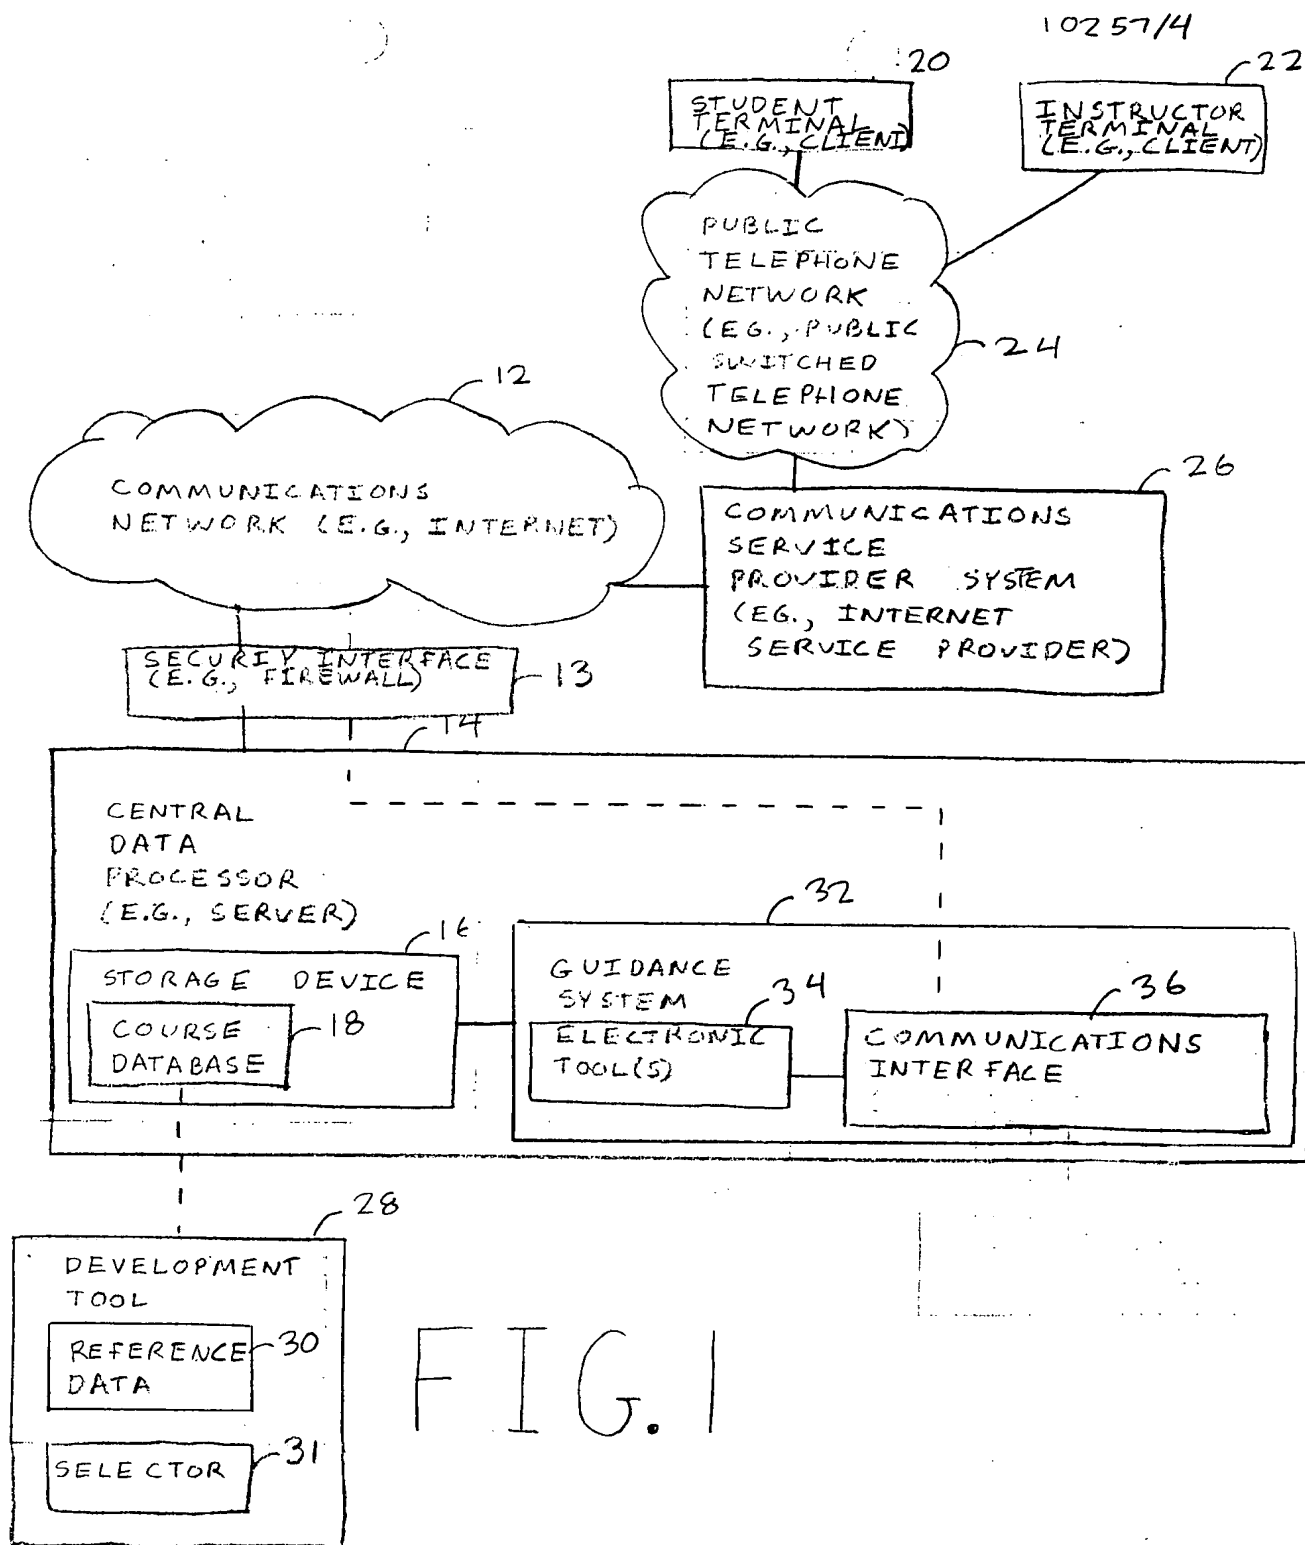 10257/4
20
22
STUDENT
TERMINAL
(E.G., CLIENT)
INSTRUCTOR
TERMINAL
(E.G., CLIENT)
PUBLIC
TELEPHONE
NETWORK
(EG., PUBLIC
SWITCHED
TELEPHONE
NETWORK)
24
12
COMMUNICATIONS
NETWORK (E.G., INTERNET)
26
COMMUNICATIONS
SERVICE
PROVIDER SYSTEM
(EG., INTERNET
SERVICE PROVIDER)
SECURIY INTERFACE
(E.G., FIREWALL)
13
14
CENTRAL
DATA
PROCESSOR
(E.G., SERVER)
16
STORAGE DEVICE
COURSE
DATABASE
18
32
GUIDANCE
SYSTEM
34
ELECTRONIC
TOOL(S)
36
COMMUNICATIONS
INTERFACE
28
DEVELOPMENT
TOOL
REFERENCE
DATA
30
SELECTOR
31
FIG. 1